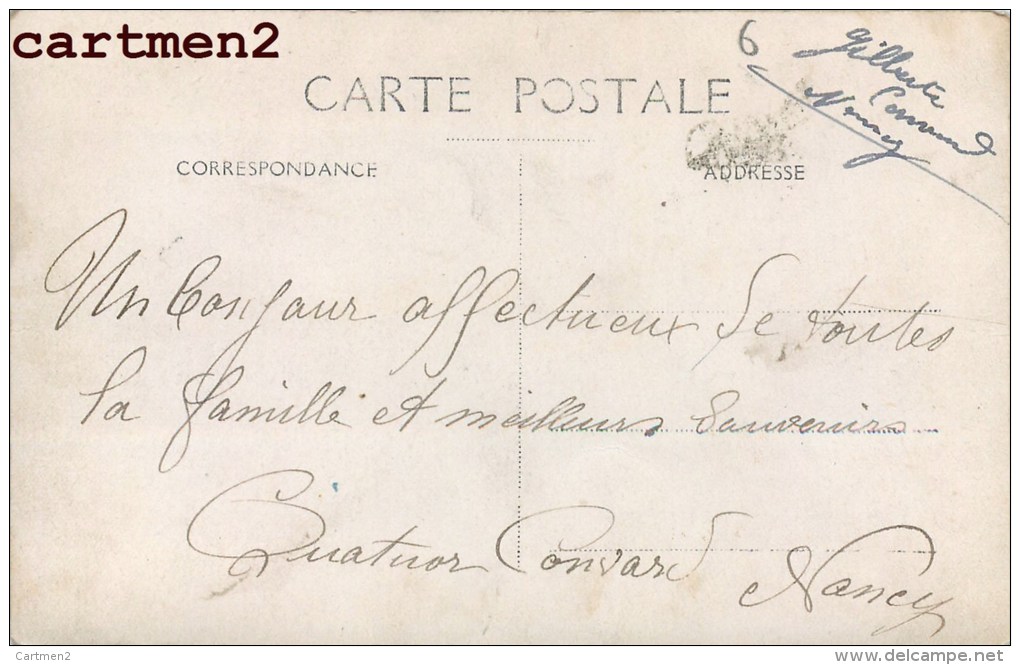 cartmen2
6
Gilberte
Nancy
CARTE POSTALE
CORRESPONDANCE
ADDRESSE
Un bonjour affectueux de toutes
la famille et meilleurs souvenirs
Quatuor Convard Nancy
Cartmen2
www.delcampe.net